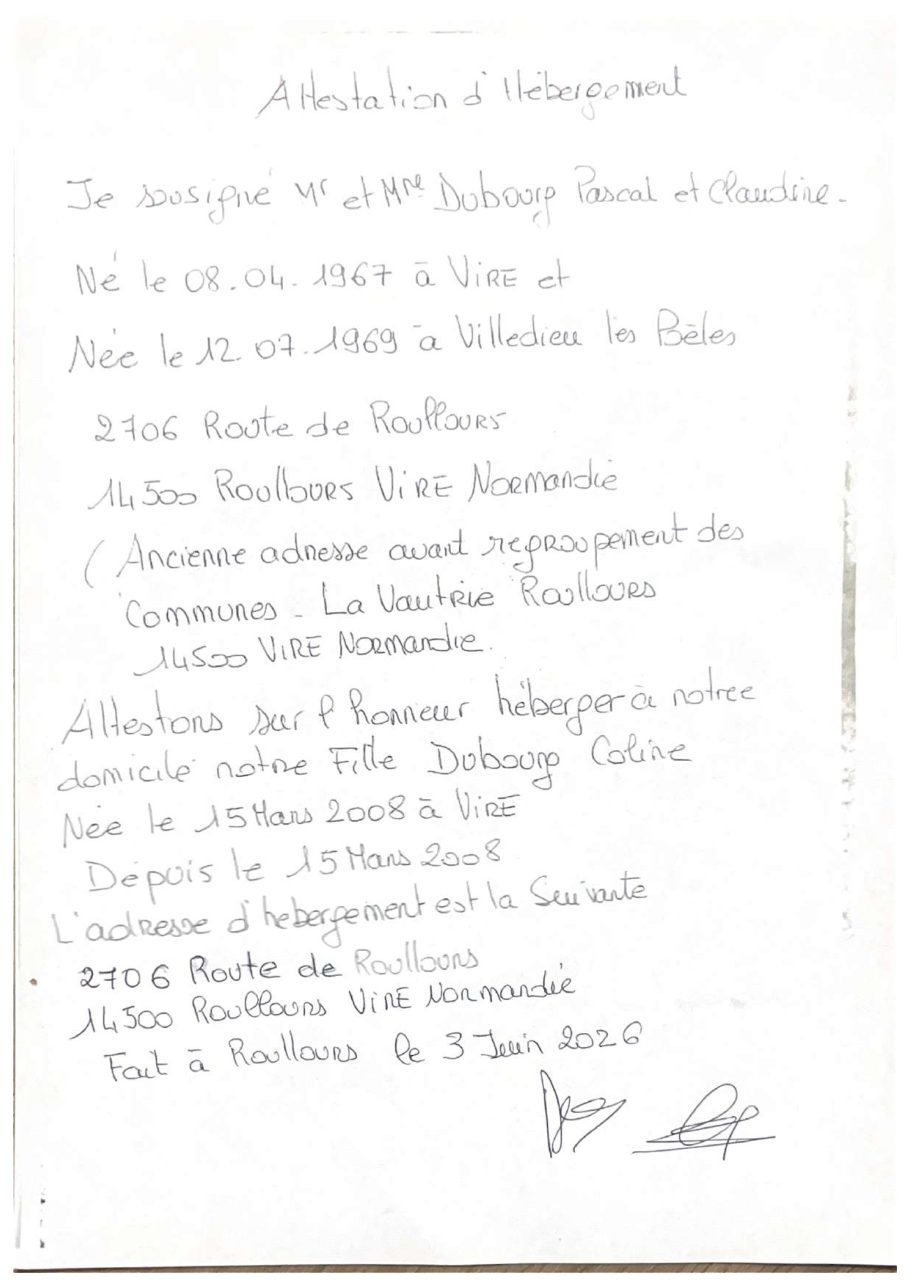 Attestation d'Hébergement
Je sousigné Mr et Mme Dubourg Pascal et Claudine.
Né le 08.04.1967 à VIRE et
Née le 12.07.1969 à Villedieu les Bêles
2706 Route de Roullours
14500 Roullours VIRE Normandie
(Ancienne adresse avant regroupement des
Communes - La Vautrie Roullours
14500 VIRE Normandie.
Attestons sur l'honneur héberger à notre
domicile notre Fille Dubourg Coline
Née le 15 Mars 2008 à VIRE
Depuis le 15 Mars 2008
L'adresse d'hebergement est la Suivante
2706 Route de Roullours
14500 Roullours VIRE Normandie
Fait à Roullours le 3 Juin 2026